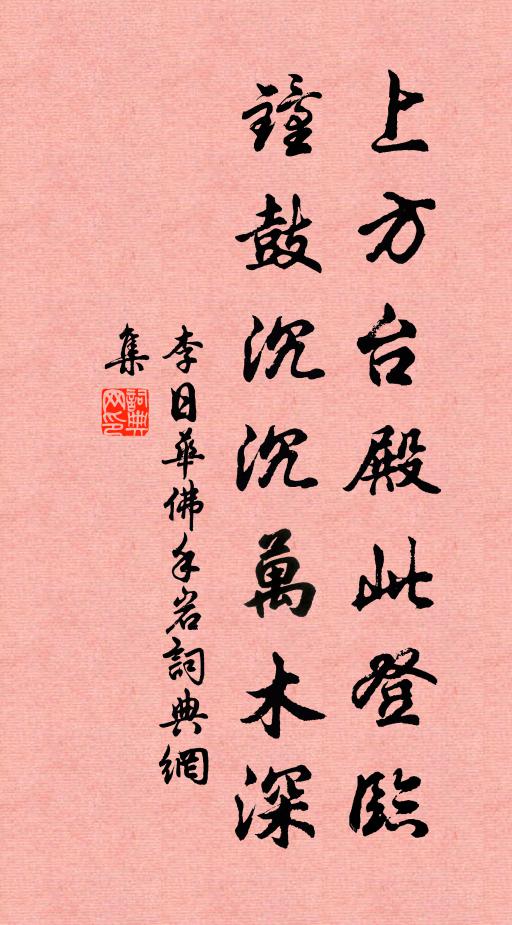 上方台殿此登臨
鐘鼓沉沉萬木深
李日華佛手岩詞典網
集
詞典
网印